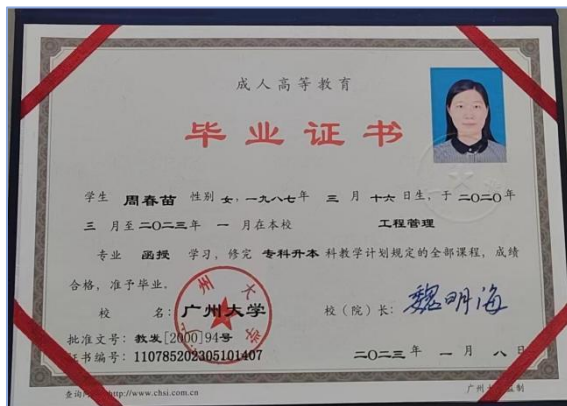 成人高等教育
毕业证书
学生 周春苗 性别 女，一九八七年 三 月 十六 日生，于 二〇二〇年
三 月至 二〇二三年 一 月在本校 工程管理
专业 函授 学习，修完 专科升本 科教学计划规定的全部课程，成绩
合格，准予毕业。
校 名：广州大学 校（院）长：魏明海
批准文号：教发[2000]94号
证书编号：110785202305101407 二〇二三 年 一 月 八 日
http://www.chsi.com.cn